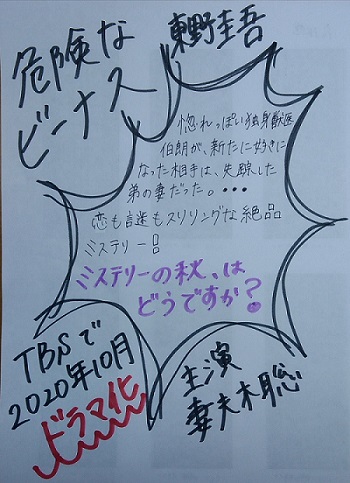 危険な
ビーナス
東野圭吾
惚れっぽい独身獣医
伯朗が、新たに好きに
なった相手は、失踪した
弟の妻だった。・・・
恋も謎もスリリングな絶品
ミステリー!!
ミステリーの秋、は
どうですか?
TBSで
2020年10月
ドラマ化
主演
妻夫木聡